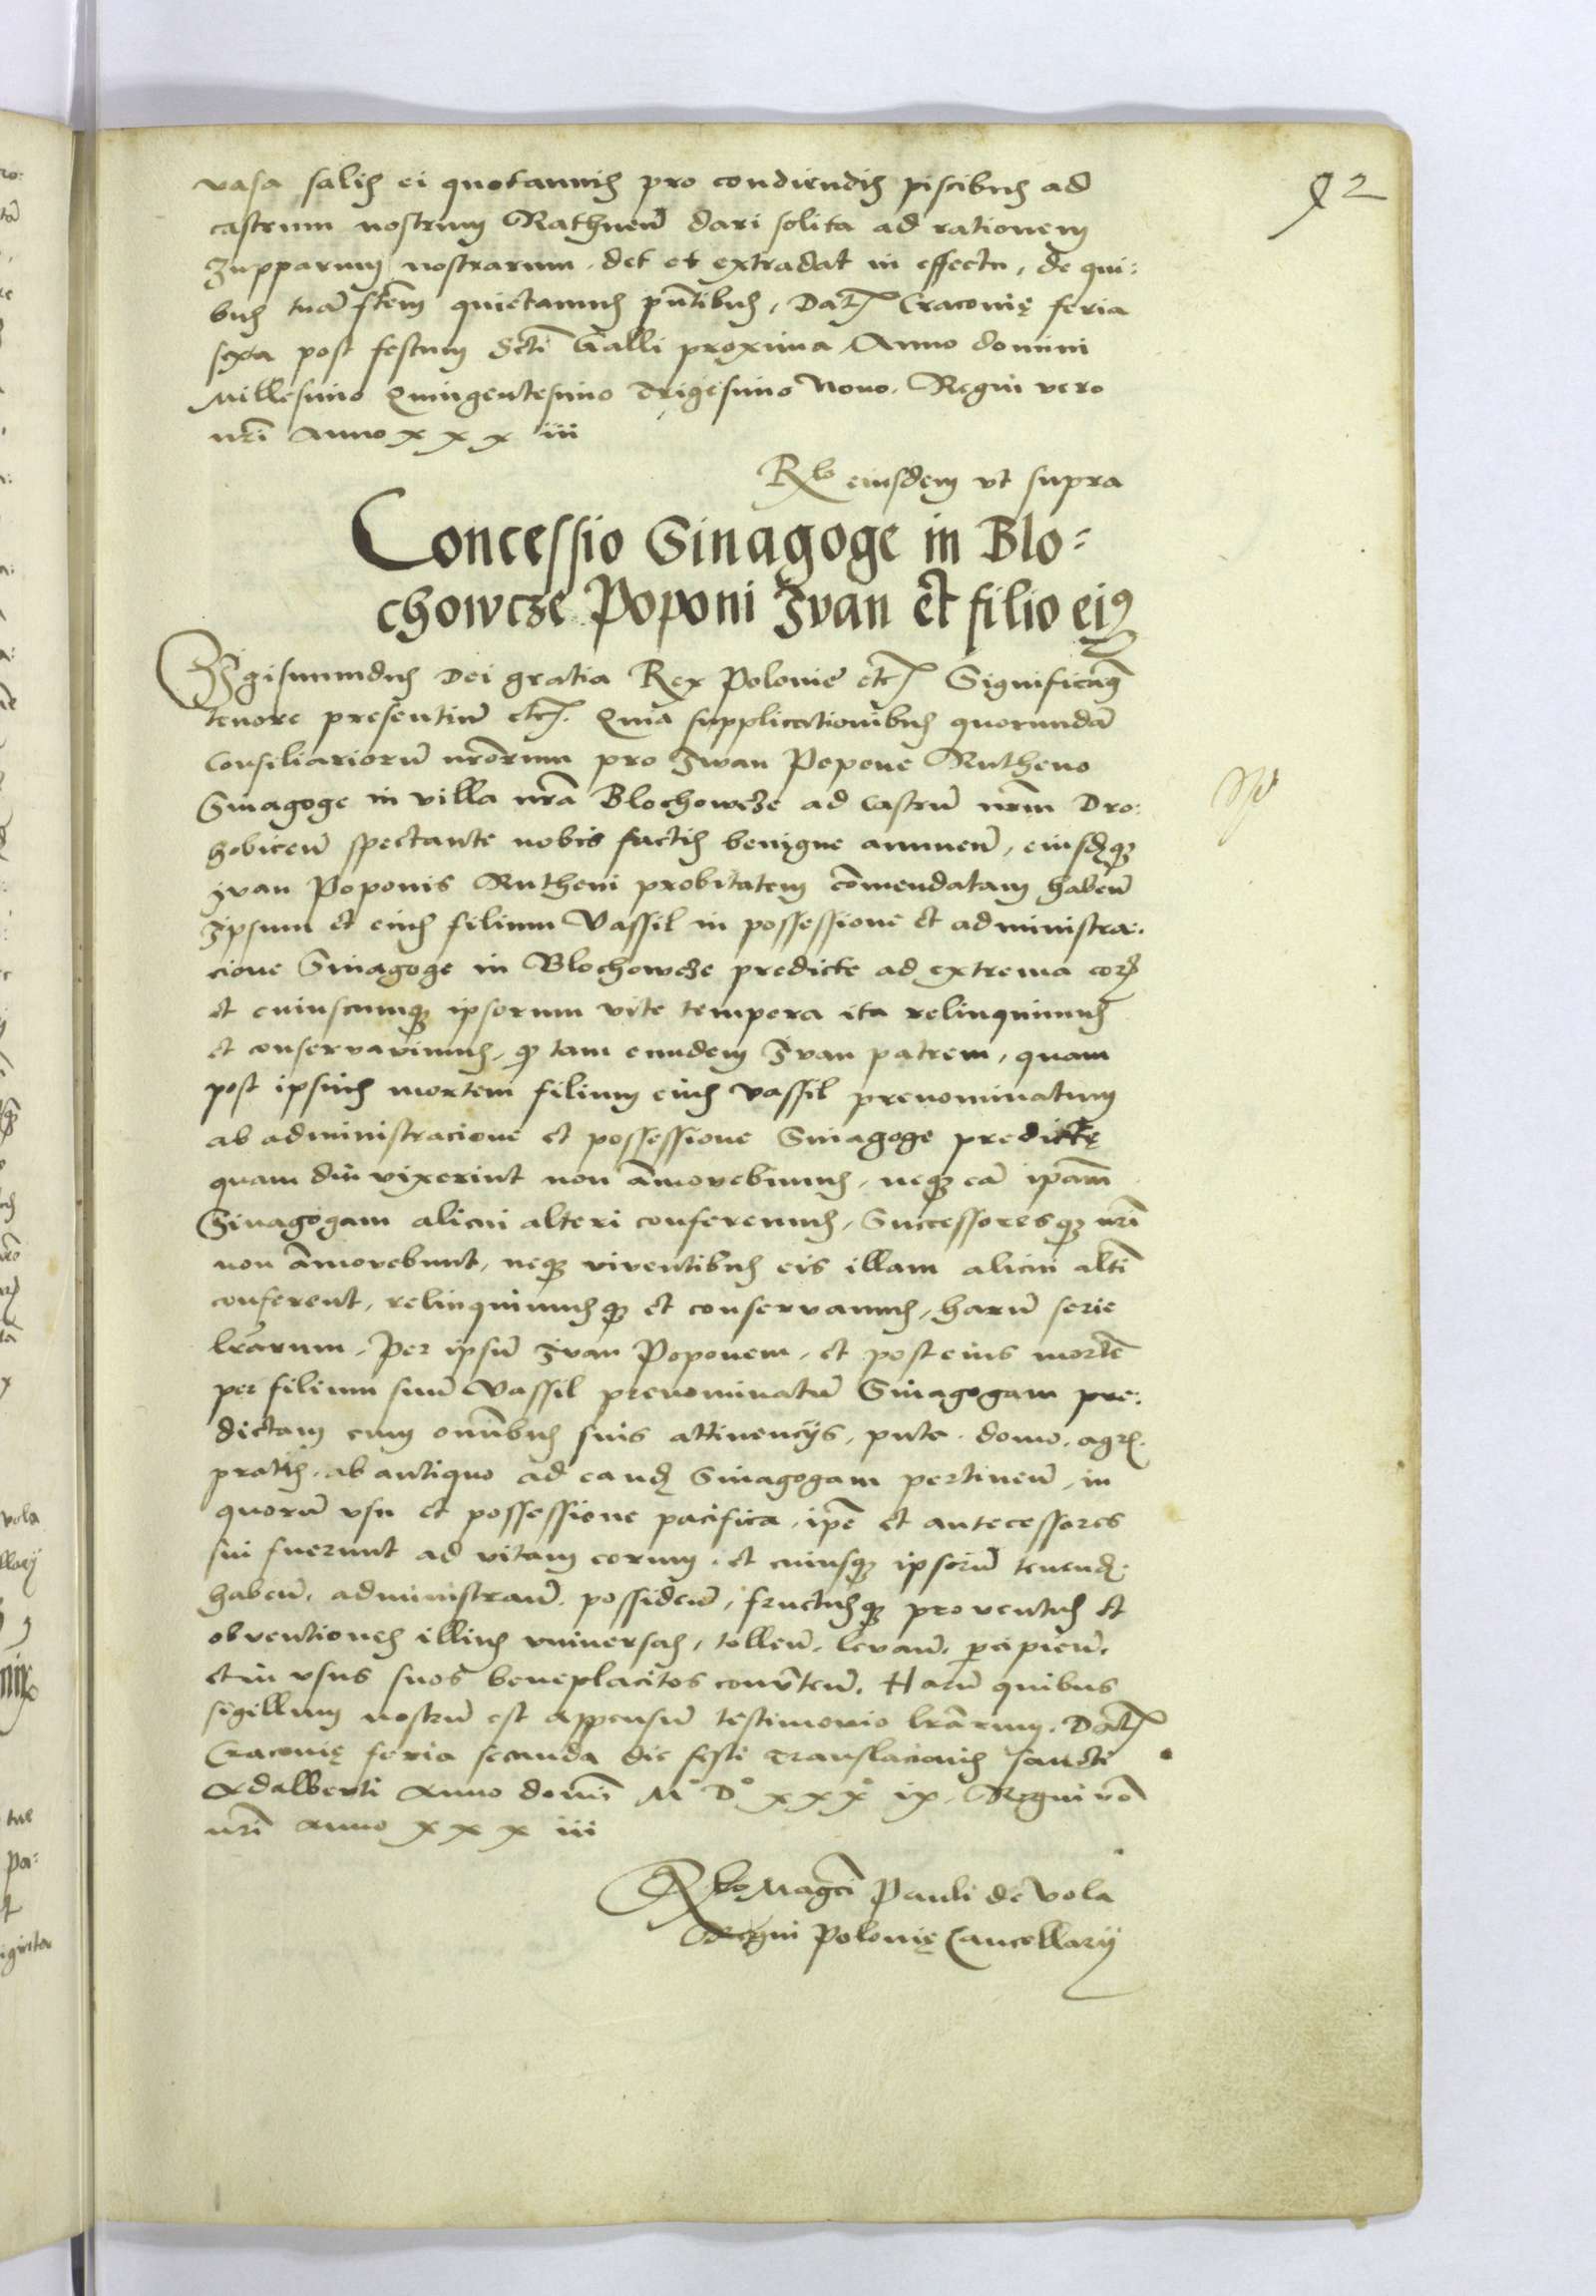 92
vasa salis ei quotannis pro condiendis piscibus ad
castrum nostrum Rathneñ dari solita ad rationem
zupparum nostrarum det et extradat in effectu, de qui:
bus tuã sr̃tem quietamus pñtibus, Dat Cracovię feria
sexta post festum Scti Galli proxima Anno domini
Millesimo Quingentesimo Trigesimo Nono. Regni vero
nr̃i Anno x x x iii
Rlo eiusdem vt supra
Concessio Sinagoge in Blo=
chowcze Poponi Iwan et filio eiꝰ
Sigismundus Dei gratia Rex Polonie etc Significamꝰ
tenore presentiũ etc. Quia supplicationibus quorundã
Consiliariorũ nr̃orum pro Iwan Popone Rutheno
Sinagoge in villa nr̃a Blochowcze ad Castrũ nr̃m Dro:
hobiceñ spectante nobis factis benigne annueñ, eiusdẽqꝫ
Ivan Poponis Rutheni probitatem cõmendatam habeñ
Ipsum et eius filium Vassil in possessione et administra:
cione Sinagoge in Blochowcze predicte ad extrema eoꝝ
et cuiuscumqꝫ ipsorum vite tempora ita relinquimus
et conservavimus, qꝫ tam eundem Ivan patrem, quam
post ipsius mortem filium eius Vassil prenominatum
ab administracione et possessione Sinagoge predictę
quam diu vixerint non ãmovebimus, neqꝫ eã ipãm
Sinagogam alicui alteri conferemus, Successoresqꝫ nr̃i
non ãmovebunt, neqꝫ viventibus eis illam alicui altĩ
conferent, relinquimusqꝫ et conservamus, harũ serie
lr̃arum, Per ipsũ Ivan Poponem, et post eius mortẽ
per filium suũ Vassil prenominatũ Sinagogam pre:
dictam cum omnĩbus suis attinencijs, puta domo, agris
pratis, ab antiquo ad eandẽ Sinagogam pertineñ, in
quorũ vsu et possessione pacifica, ip̃e et antecessores
sui fuerunt ad vitam eorum, et cuiusqꝫ ipsorũ tenend
habeñ, administrañ, possideñ, fructusqꝫ proventus et
obventiones illius vniversas, tolleñ, levañ, percipieñ,
et in vsus suos beneplacitos conṽteñ. Harũ quibus
sigillum nostrũ est appensũ testimonio lr̃arum. Dat
Cracovię feria secunda die festi Translacionis sancti
Adalberti Anno domĩ M° D° xxx° ix. Regni võ
nr̃i Anno x x x iii
Rlo Magci Pauli de Vola
Regni Polonię Cancellarij